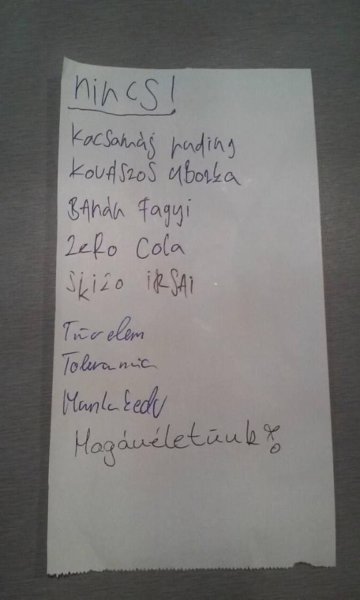 nincs!
Kacsamáj puding
KOVÁSZOS UBORKA
BANÁN FAGYI
ZERO COLA
SKIZO IRSAI
Türelem
Tolerancia
Munkakedv
Magánéletünk%